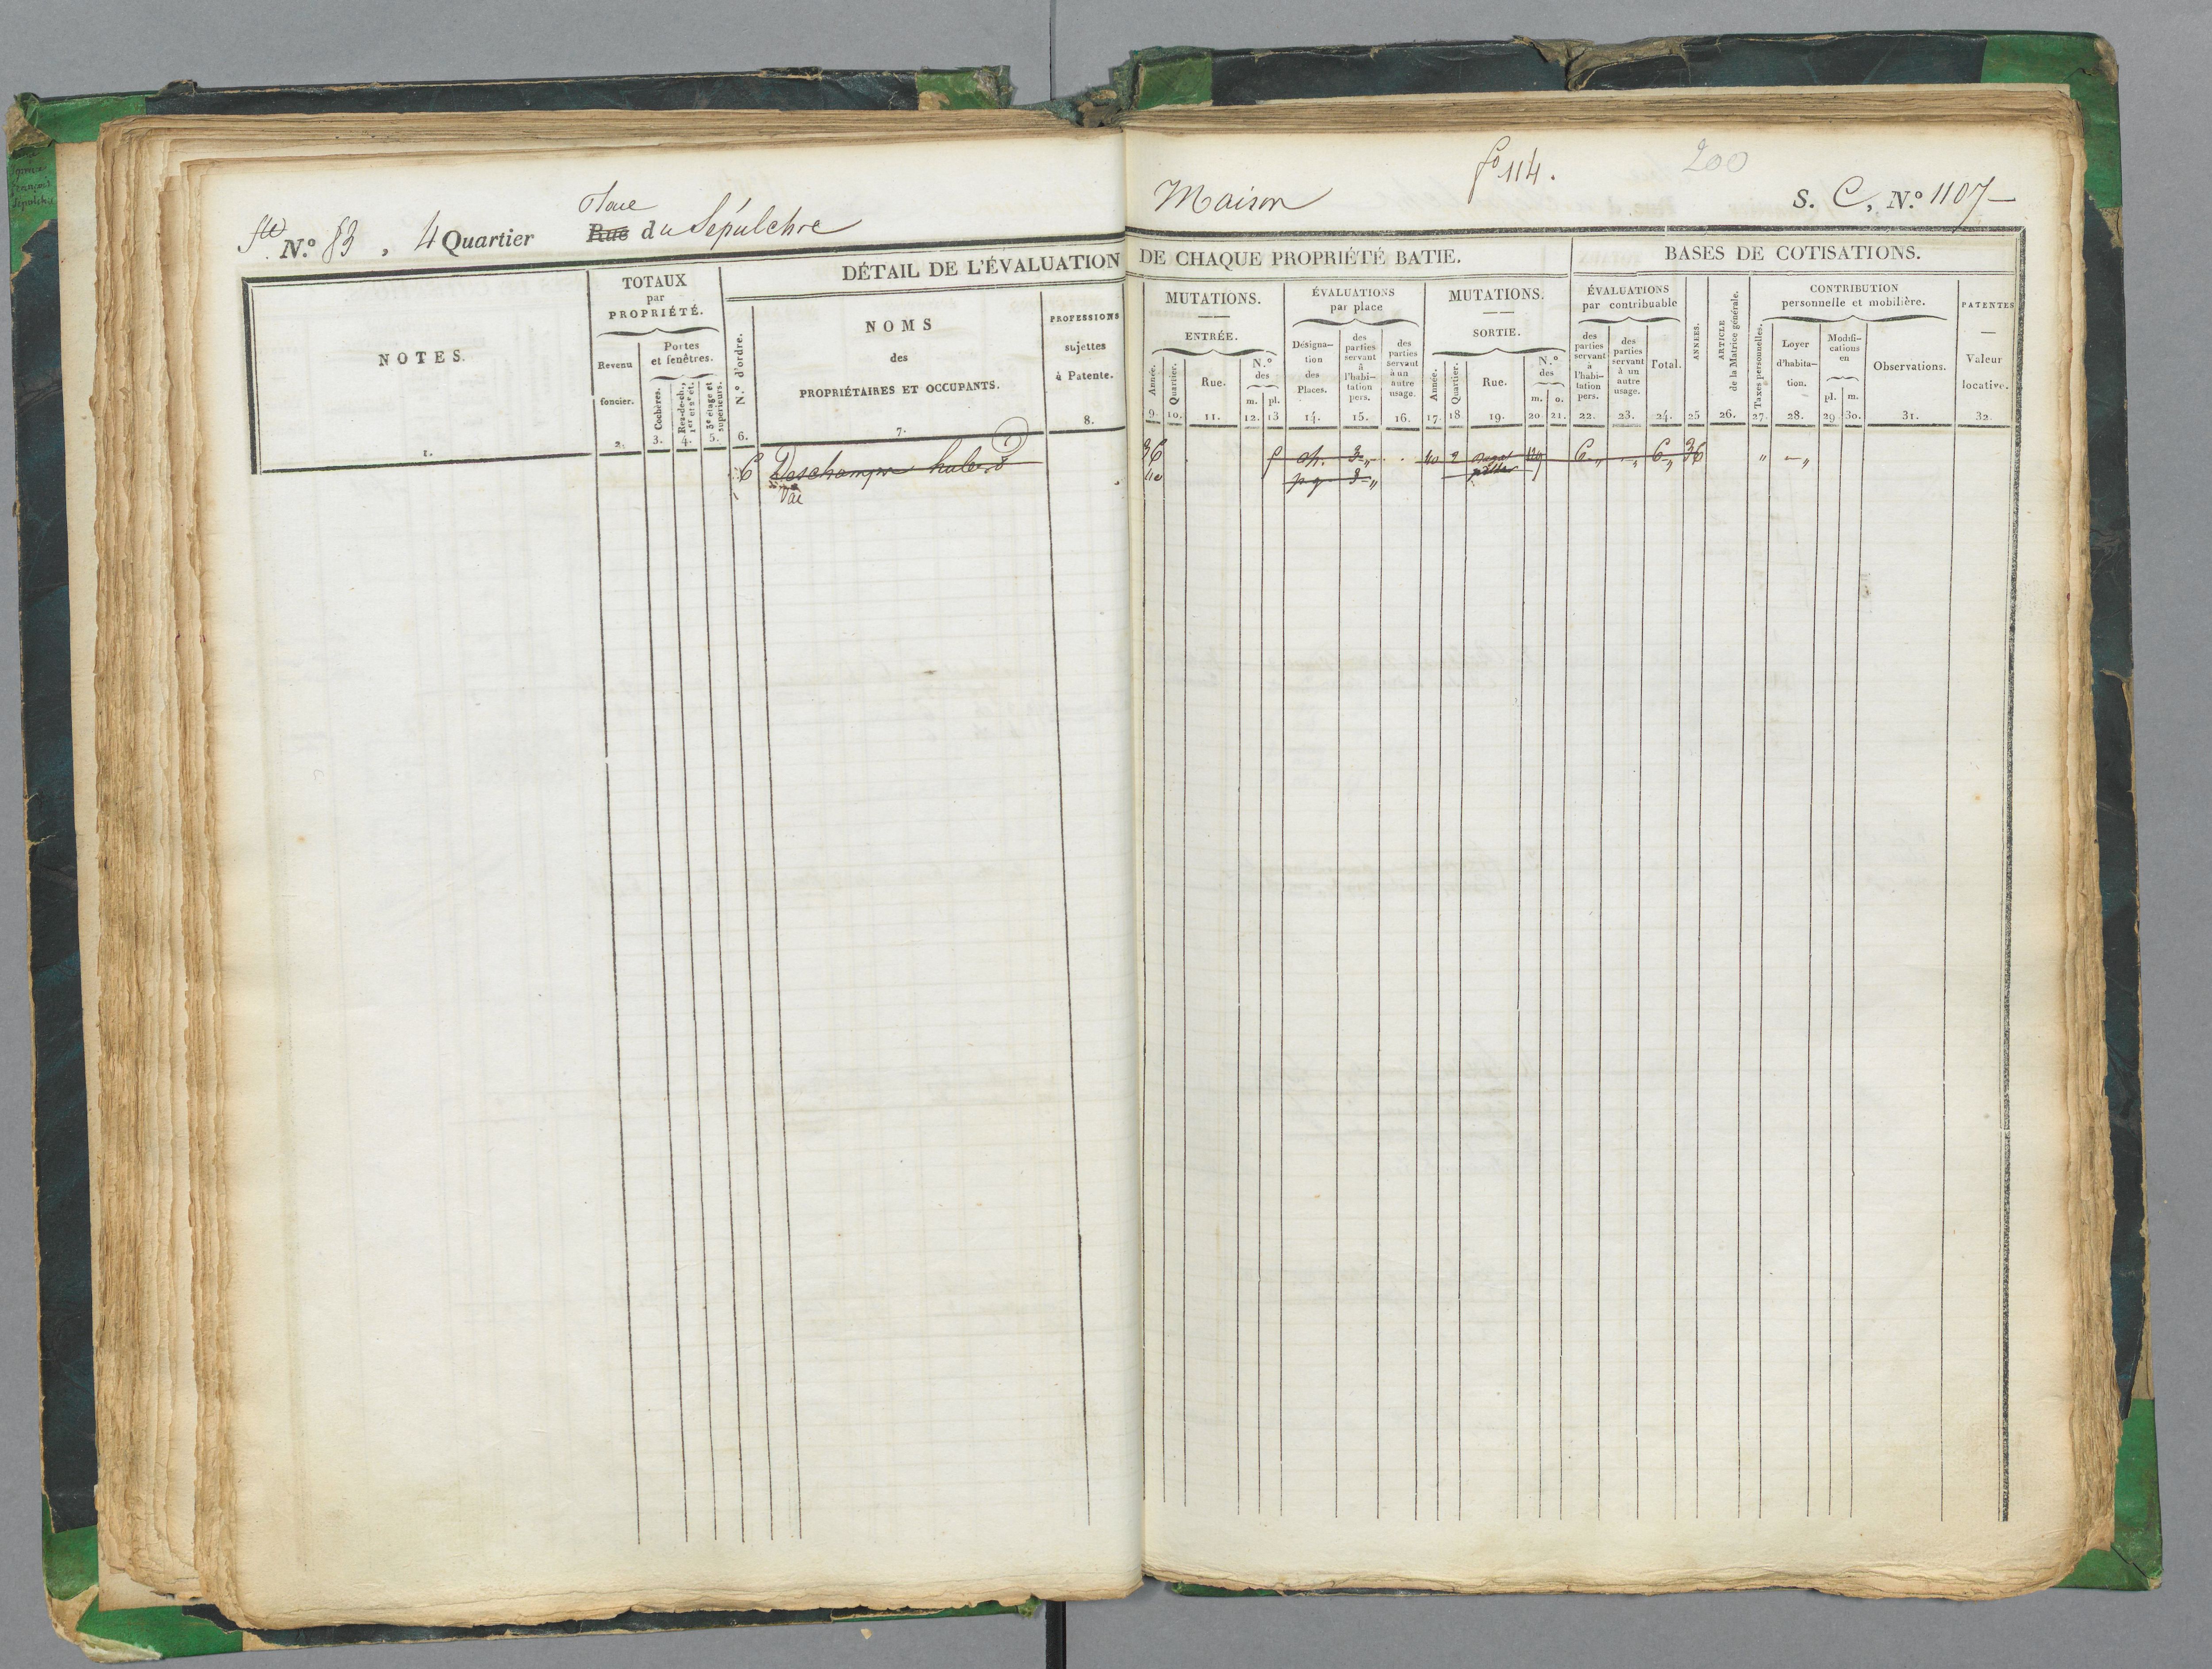 fº 114. 200
Place
Ste N.º 83, 4 Quartier Rue du Sépulchre
Maison S. C, N.º 1107
DÉTAIL DE L'ÉVALUATION DE CHAQUE PROPRIÉTÉ BATIE. BASES DE COTISATIONS.
NOTES.
1.
TOTAUX
par
PROPRIÉTÉ.
Revenu
foncier.
2.
Portes
et fenêtres.
Cochères.
3.
Rez-de-ch.,
1er et 2e ét.
4.
3e étage et
supérieurs.
5.
N.º d'ordre.
6.
NOMS
des
PROPRIÉTAIRES ET OCCUPANTS.
7.
PROFESSIONS
sujettes
à Patente.
8.
MUTATIONS.
ENTRÉE.
Année.
9.
Quartier.
10.
Rue.
11.
N.º
des
m. pl.
12. 13
ÉVALUATIONS
par place
Désigna-
tion
des
Places.
14.
des
parties
servant
à
l'habi-
tation
pers.
15.
des
parties
servant
à un
autre
usage.
16.
MUTATIONS.
SORTIE.
Année.
17.
Quartier.
18
Rue.
19.
N.º
des
m. o.
20 21.
ÉVALUATIONS
par contribuable
des
parties
servant
à
l'habi-
tation
pers.
22.
des
parties
servant
à un
autre
usage.
23.
Total.
24.
ANNEES.
25
ARTICLE
de la Matrice générale.
26.
CONTRIBUTION
personnelle et mobilière.
Taxes personnelles.
27.
Loyer
d'habita-
tion.
28.
Modifi-
cations
en
pl. m.
29 30.
Observations.
31.
PATENTES
Valeur
locative.
32.
6 Deschamps hubert 36 ch. 3 " 40 2 6 " " 6 " 36 " "
Vac 40 3 "